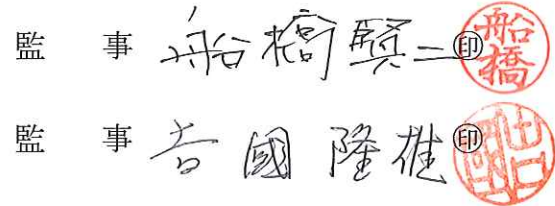 監 事 船橋賢二 ㊞ 船橋
監 事 吉國 隆雄 ㊞